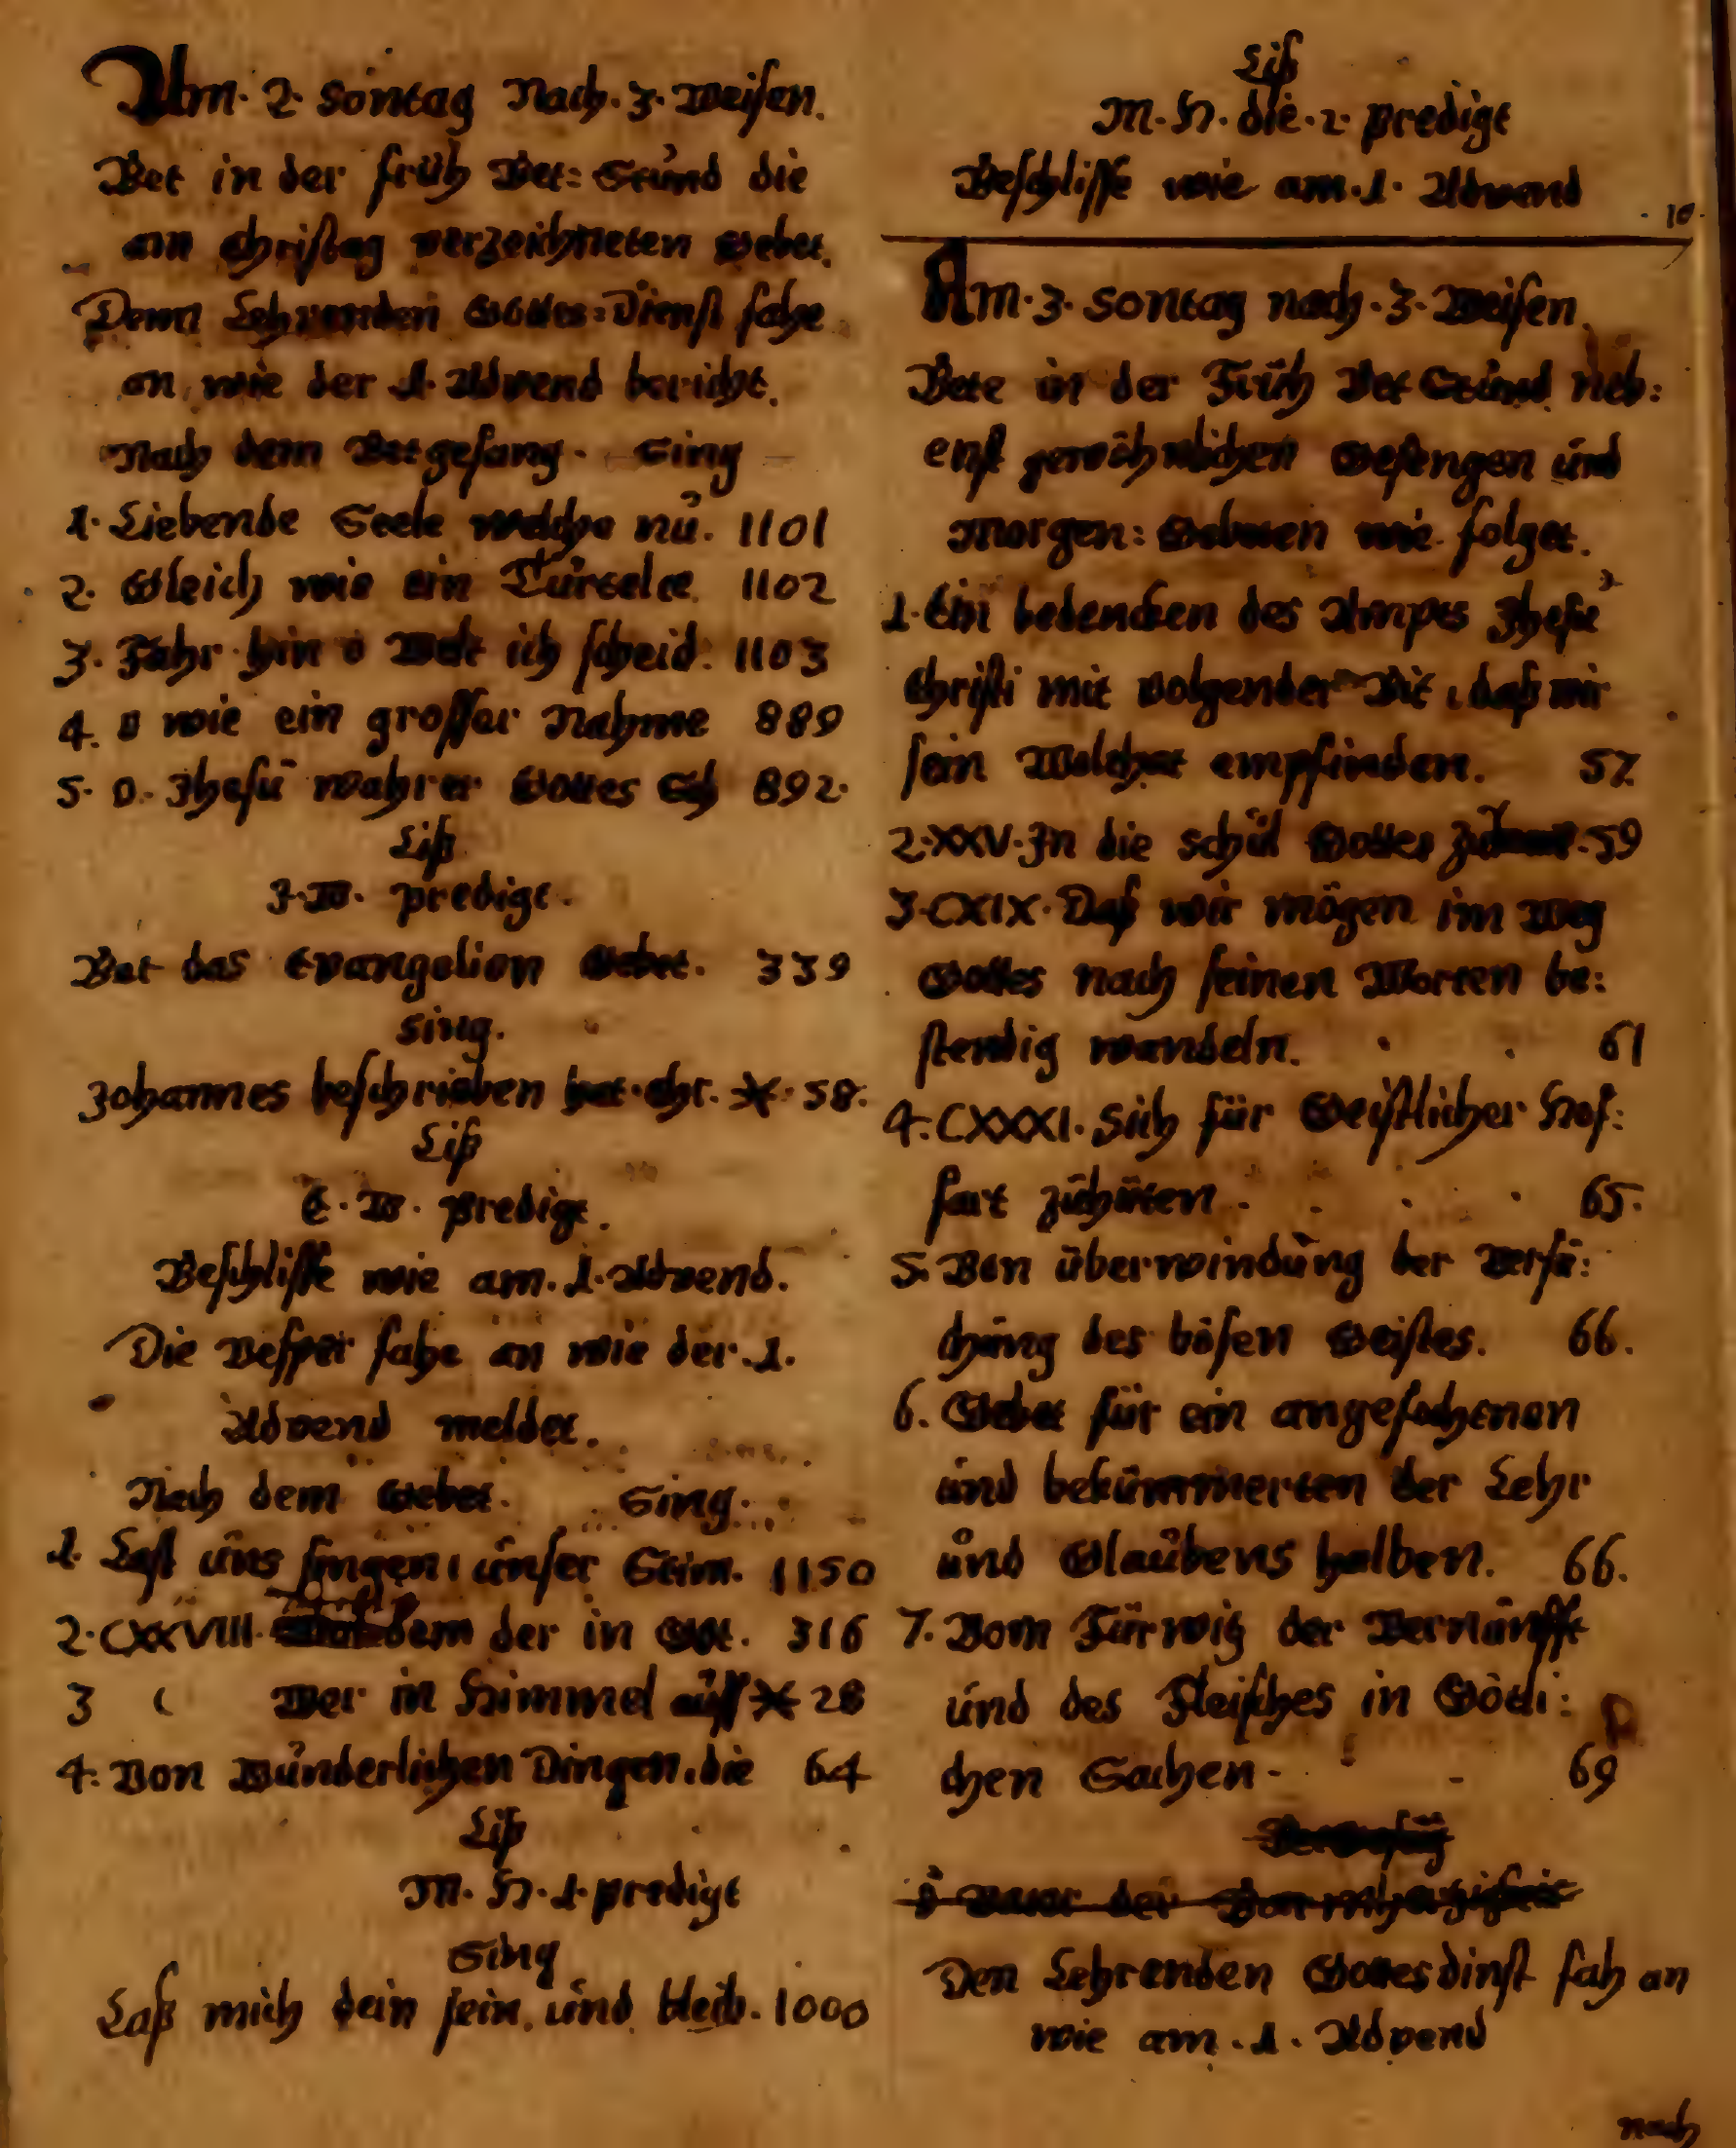 Am. 2. Sontag Nach. 3. Weisen.
Bet in der früh Bet: Stund die
am Christag verzeichneten Gebet.
Denn Lehrenden Gottes: Dienst fahe
an, wie der 1. Advend bericht.
Nach dem Betgesang. Sing
1. Liebende Seele welche nu. 1101
2. Gleich wie ein Turtelte 1102
3. Fahr hin o Welt ich scheid. 1103
4. O wie ein grosser Nahme 889
5. O. Jhesu wahrer Gottes 892.
Liß
J. W. predigt.
Bet das Evangelion Gebet. 339
Sing.
Johannes beschrieben hat. Chr. * 58.
Liß
E. W. predigt.
Beschlisse wie am. 1. Advend.
Die Vesper fahe an wie der. 1.
Advend meldet.
Nach dem Gebet. Sing.
1. Last uns singen, unser Stim. 1150
2. CXXVIII. dem der in Got. 316
3 ( Wer in Himmel auff * 28
4. Von Wunderlichen Dingen, die 64
Liß
M. H. 1. predigt
Sing
Laß mich dein sein, und bleib. 1000
Liß
M. H. die. 2. predigt
Beschlisse wie am. 1. Advend
10.
Am. 3. Sontag nach. 3. Weisen.
Bete in der Früh Bet Stund neb:
enst gewöhnlichen Gesengen und
Morgen: Gebeten wie folget.
1. Ein bedencken des Ampes Jhesu
Christi mit volgender Bit, daß wir
sein Wolthat empfinden. 57
2. XXV. Jn die schul Gottes 59
3. CXIX. Daß wir mögen im Weg
Gottes nach seinen Worten be:
stendig wandeln. 61
4. CXXXI. Sich für Geistlicher Hof:
fart zuhüten. 65.
5. Von überwindung der Versu:
chung des bösen Geistes. 66.
6. Gebet für ein angefochtenen
und bekümmerten der Lehr
und Glaubens halben. 66.
7. Vom Fürwitz der Vernunfft
und des Fleisches in Götli:
chen Sachen. 69
Den Lehrenden Gottesdinst fah an
wie am. 1. Advend
nach